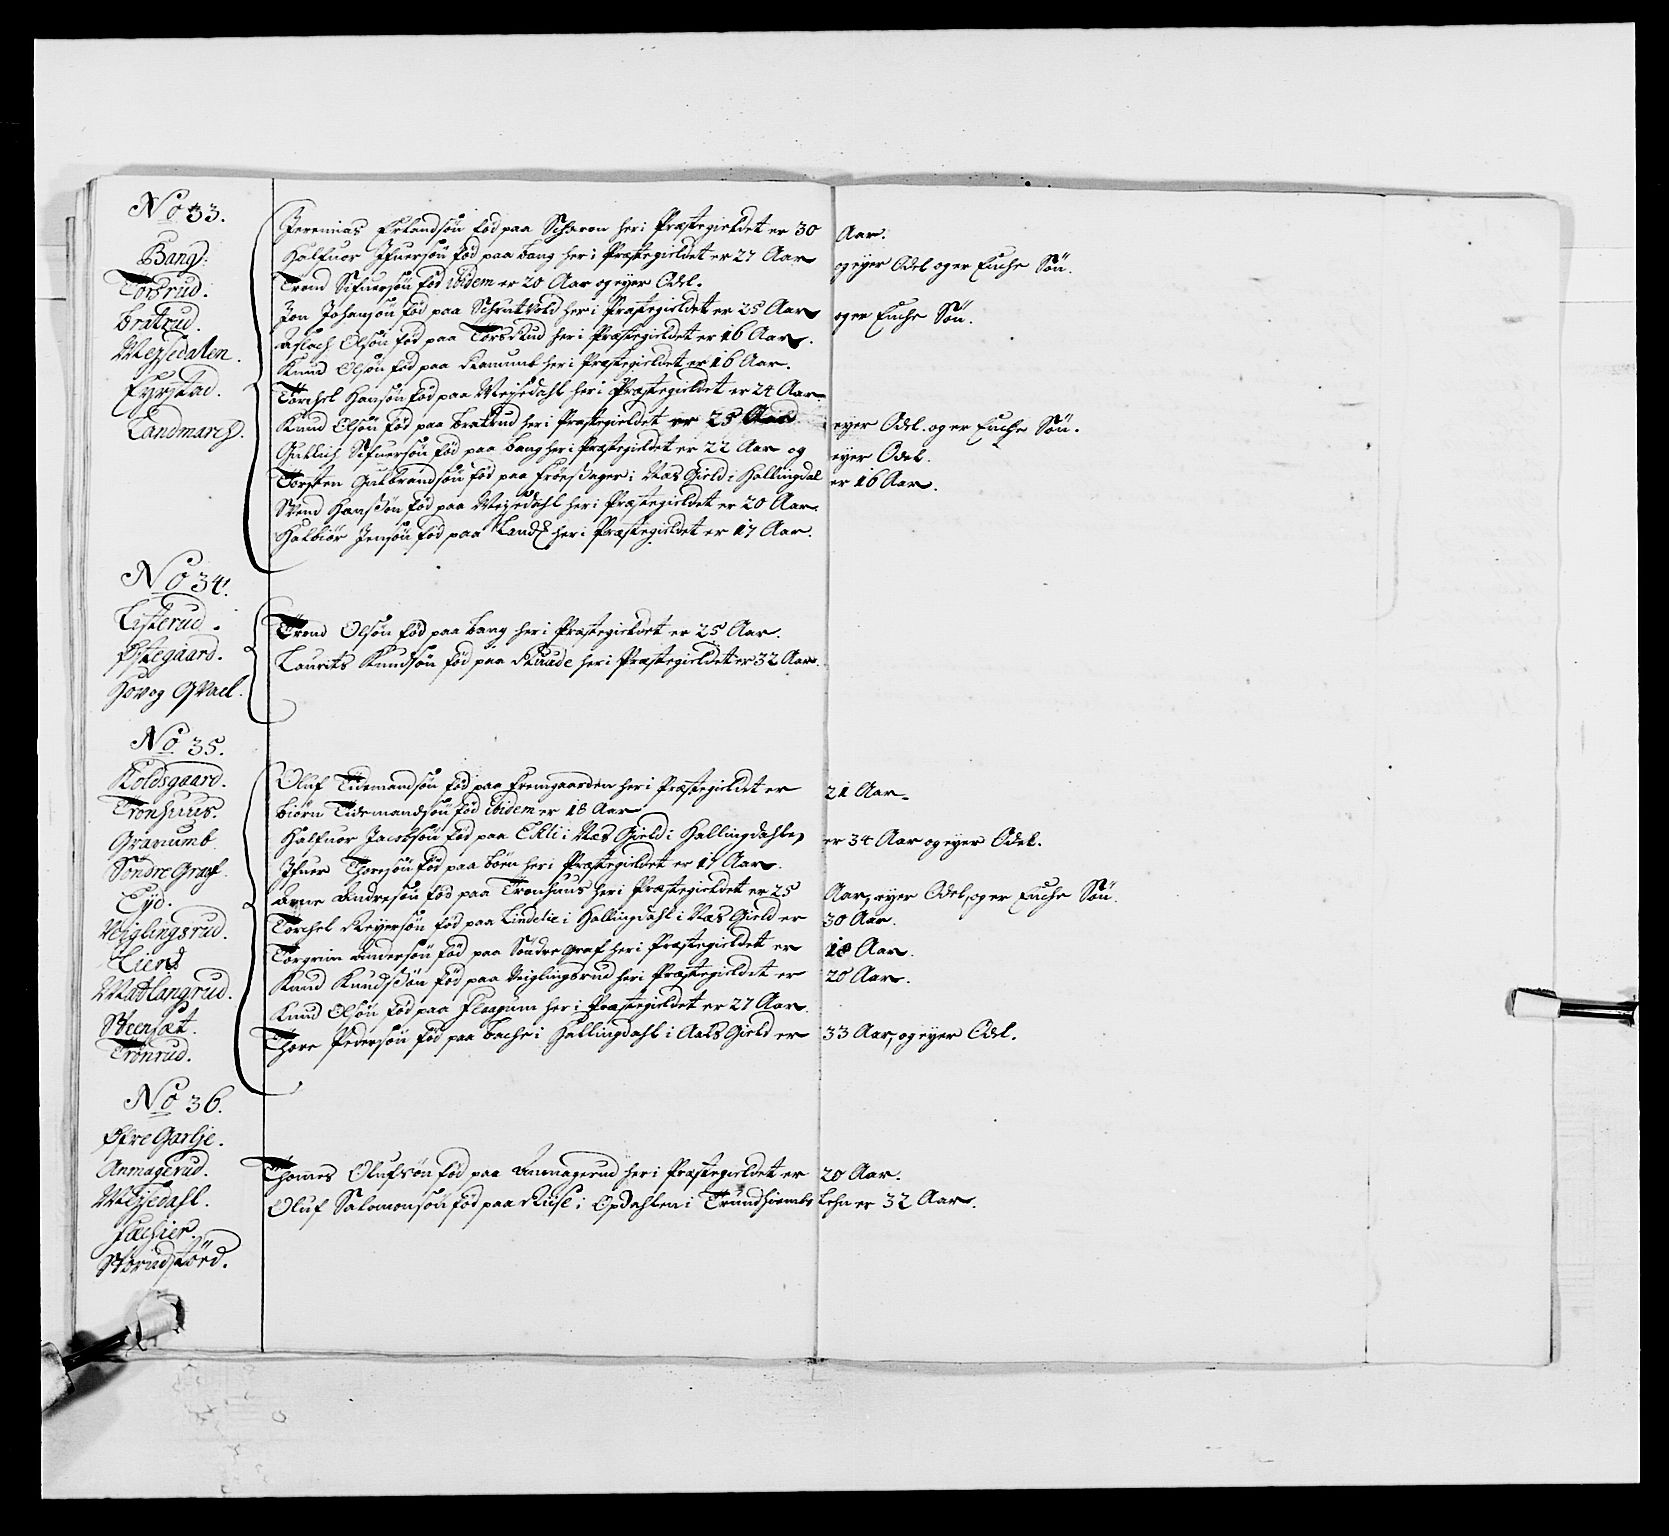 No 33.
Bang.
Torsrud.
Bratrud.
Mejsedalen.
Fyrstad.
Landmarch.
Jeremias Erlandsøn fød paa Scharon her i Præstegieldet er 30 Aar.
Halfuor Ifuersøn fød paa Bang her i Præstegieldet er 27 Aar og eyer Odel og er Enche Søn.
Trond Sifuersøn fød ibidem er 20 Aar og eyer Odel.
Jon Johansøn fød paa Schrutvold her i Præstegieldet er 25 Aar og er Enche Søn.
Aslach Olsøn fød paa Torsrud her i Præstegieldet er 16 Aar.
Knud Olsøn fød paa Ramumb her i Præstegieldet er 16 Aar.
Torchel Hansøn fød paa Meysedahl her i Præstegieldet er 24 Aar
Knud Olsøn fød paa Bratrud her i Præstegieldet er 25 Aar eyer Odel. og er Enche Søn.
Gutlich Sifuersøn fød paa Bang her i Præstegieldet er 22 Aar og eyer Odel.
Torsten Gulbrandsøn fød paa i Naas Gield i Hallingdal er 16 Aar.
Svend Hanssøn fød paa Mejsedahl her i Præstegieldet er 20 Aar.
Halbiør Jensøn fød paa her i Præstegieldet er 17 Aar.
No 34.
Listerud.
Østegaard.
Hov og Qvael.
Trond Olsøn fød paa Bang her i Præstegieldet er 25 Aar.
Laurits Knudsøn fød paa Ruude her i Præstegieldet er 32 Aar.
No 35.
Koldsgaard.
Tronhuus.
Granumb.
Søndre Graf.
Eyd.
Veyglingsrud.
Lier.
Matlangrud.
Steensæt.
Tronrud.
Oluf Tidemandsøn fød paa Fremgaarden her i Præstegieldet er 21 Aar.
Biørn Tidemandsøn fød ibidem er 18 Aar
Halfuor Jacobsøn fød paa Eklii i Næs Gield i Hallingdahlen er 34 Aar og eyer Odel.
Ifuer Thoresøn fød paa Bøen her i Præstegieldet er 17 Aar.
Arne Andresøn fød paa Tronhuus her i Præstegieldet er 25 Aar, eyer Odel, og er Enche Søn.
Torchel Reyersøn fød paa Lindelie i Hallingdahl i Næs Gield er 30 Aar.
Torgrim Andersøn fød paa Søndre Graf her i Præstegieldet er 18 Aar.
Knud Knudssøn fød paa Veiglingsrud her i Præstegieldet er 20 Aar.
Knud Olsøn fød paa Flaagum her i Præstegieldet er 27 Aar.
Thore Pedersøn fød paa Bache i Hallingdahl i Aals Gield er 33 Aar, og eyer Odel.
No 36.
Øfre Garlje.
Anmagerud.
Mejsedahl.
Stormdstørd.
Thomes Olufsøn fød paa Anmagerud her i Præstegieldet er 20 Aar.
Oluf Salomonsøn fød paa Riise i Opdahlen i Trundhiembs Lehn er 32 Aar.